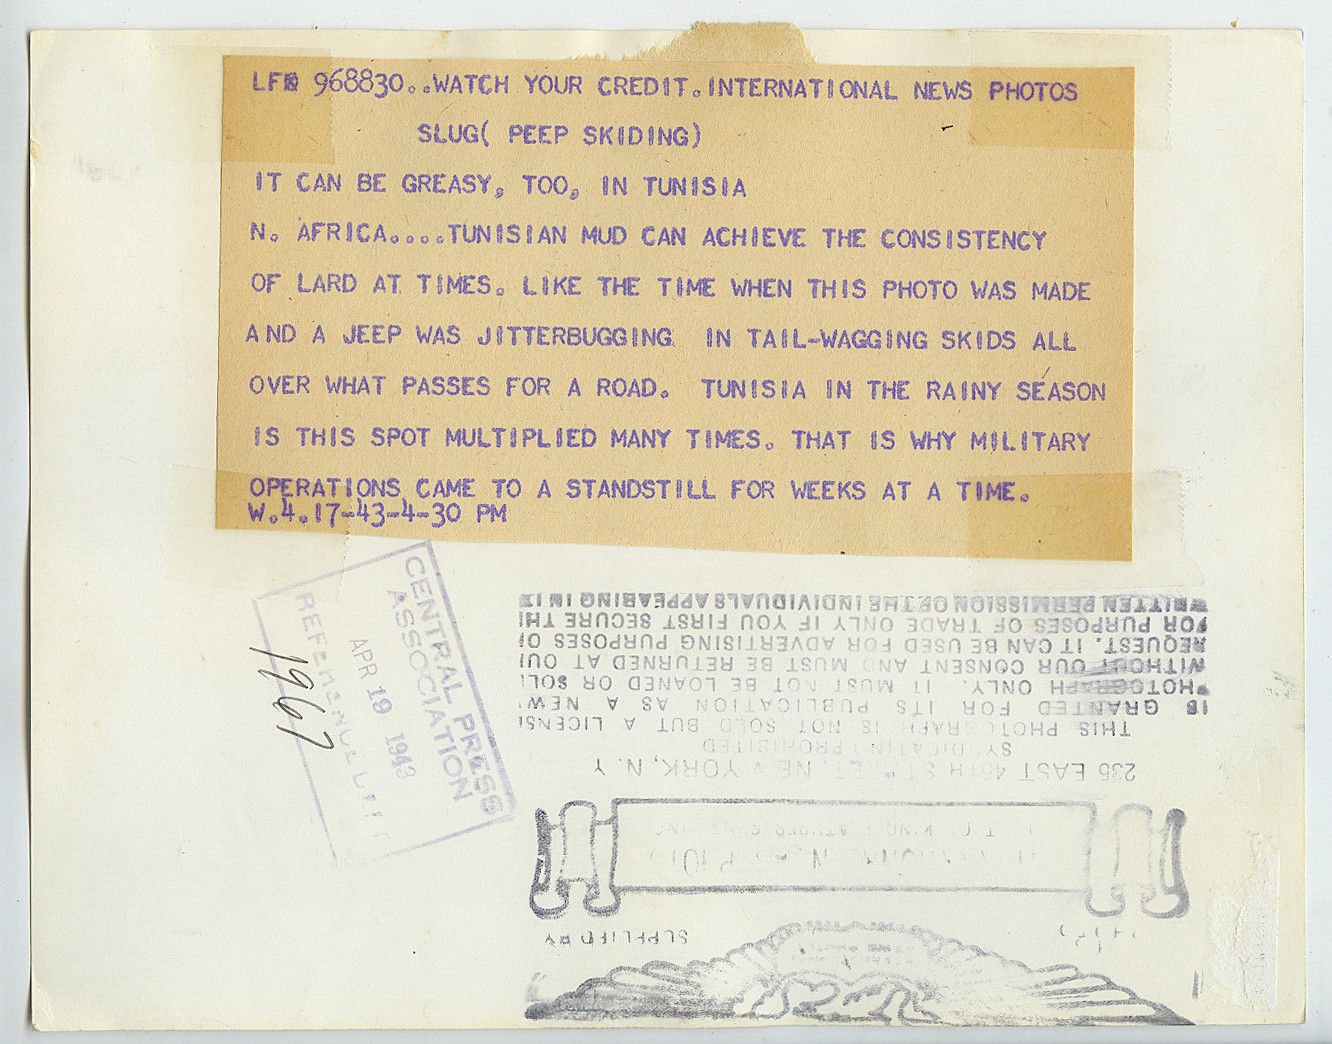 LFD 968830..WATCH YOUR CREDIT.INTERNATIONAL NEWS PHOTOS
SLUG( PEEP SKIDING)
IT CAN BE GREASY, TOO, IN TUNISIA
N. AFRICA....TUNISIAN MUD CAN ACHIEVE THE CONSISTENCY
OF LARD AT TIMES. LIKE THE TIME WHEN THIS PHOTO WAS MADE
AND A JEEP WAS JITTERBUGGING IN TAIL-WAGGING SKIDS ALL
OVER WHAT PASSES FOR A ROAD. TUNISIA IN THE RAINY SEASON
IS THIS SPOT MULTIPLIED MANY TIMES. THAT IS WHY MILITARY
OPERATIONS CAME TO A STANDSTILL FOR WEEKS AT A TIME.
W.4.17-43-4-30 PM
CENTRAL PRESS
ASSOCIATION
APR 19 1943
REFERENCE
1967
SUPPLIED BY
235 EAST 45TH STREET, NEW YORK, N.Y
SYNDICATIN PROHIBITED
THIS PHOTOGRAPH IS NOT SOLD BUT A LICENS
IS GRANTED FOR ITS PUBLICATION AS A NEW
PHOTOGRAPH ONLY. IT MUST NOT BE LOANED OR SOL
WITHOUT OUR CONSENT AND MUST BE RETURNED AT OU
REQUEST. IT CAN BE USED FOR ADVERTISING PURPOSES O
FOR PURPOSES OF TRADE ONLY IF YOU FIRST SECURE TH
WRITTEN PERMISSION OF THE INDIVIDUALS APPEARING IN I